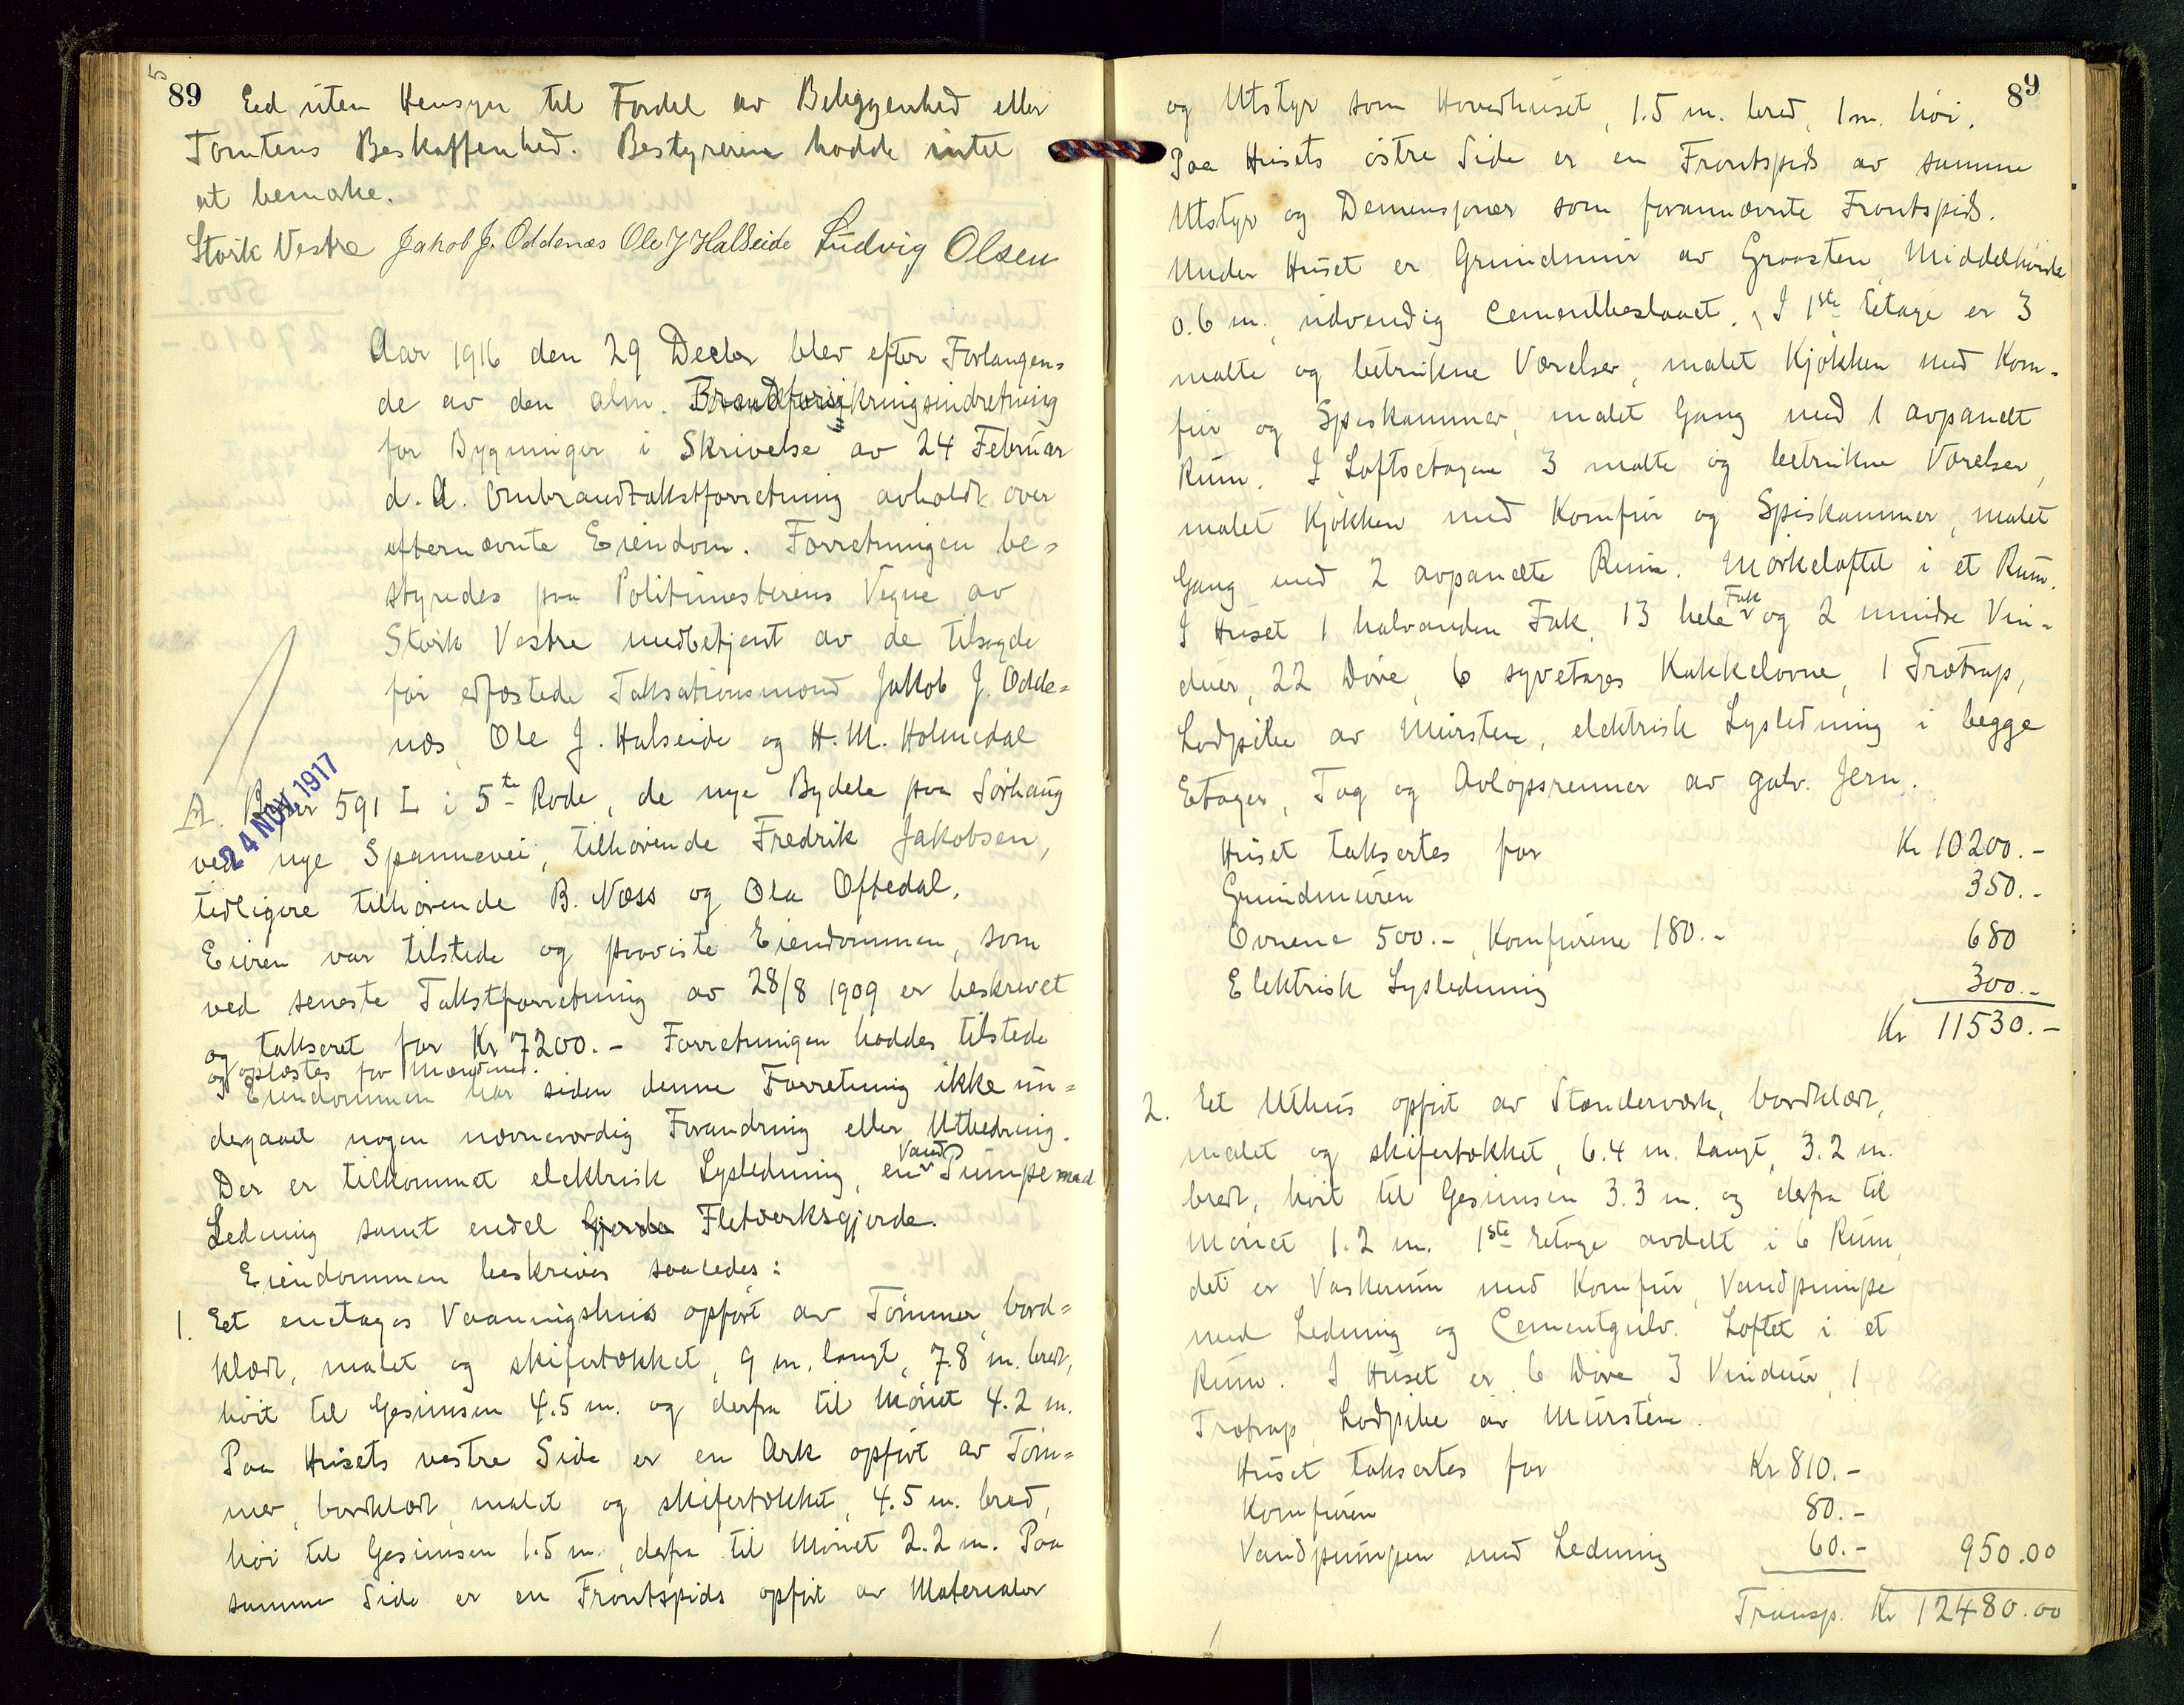 89
Eed uten Hensyn til Fordel av Beliggenhed eller
Tomtens Beskaffenhed. Bestyreren hadde intet
at bemærke.
Størk Vestre Jakob J. Oddenæs Ole J Halseide Ludvig Olsen
Aar 1916 den 29 Decbr blev efter Forlangen=
de av den alm. Brandforsikringsindretning
for Bygninger i Skrivelse av 24 Februar
d. A. Ombrandtakstforretning avholdt over
efternævnte Eiendom. Forretningen be=
styredes paa Politimesterens Vegne av
Størk Vestre medbetjent av de tilsagde
før edfæstede Taksationsmænd Jakob J. Odde=
næs, Ole J. Halseide og H. M. Holmedal
A. 591 L i 5te Rode, de nye Bydele paa Sørhaug
24 NOV. 1917
ved nye Spannevei, tilhørende Fredrik Jakobsen,
tidligere tilhørende B. Næss og Ola Oftedal.
Eieren var tilstede og paaviste Eiendommen, som
ved seneste Takstforretning av 28/8 1909 er beskrevet
og taksert for Kr 7200.- Forretningen haddes tilstede
og oplæstes for Mændene.
Eiendommen har siden denne Forretning ikke un=
dergaaet nogen nævneværdig Forandring eller Utbedring.
Der er tilkommet elektrisk Lysledning, en Vand Pumpe med
Ledning samt endel Gjerde Fletværksgjerde.
Eiendommen beskrives saaledes:
1. Eet enetages Vaaningshus opført av Tømmer, bord=
klædt, malet og skifertækket, 9 m. langt, 7.8 m. bredt,
høit til Gesimsen 4.5 m. og derfra til Mønet 4.2 m.
Paa Husets vestre Side er en Ark opført av Tøm=
mer, bordklædt, malet og skifertækket, 4.5 m. bred,
høi til Gesimsen 1.5 m., derfra til Mønet 2.2 m. Paa
samme Side er en Frontspids opført av Materialer
89
og Utstyr som Hovedhuset, 1.5 m. bred, 1 m. høi.
Paa Husets østre Side er en Frontspids av samme
Utstyr og Demensjoner som forannævnte Frontspids.
Under Huset er Grundmur av Graasten, Middelhøide
0.6 m., udvendig Cementbeslaaet. I 1ste Etage er 3
malte og betrukne Værelser, malet Kjøkken med Kom-
fur og Spiskammer, malet Gang med 1 avpanelt
Rum. I Loftsetagen 3 malte og betrukne Værelser,
malet Kjøkken med Komfur og Spiskammer, malet
Gang med 2 avpanelte Rum. Mørkeloftet i et Rum.
I Huset 1 halvanden Fak, 13 hele Fak og 2 mindre Vin-
duer, 22 Døre, 6 syvetages Kakkelovne, 1 Trætrap,
Lodpibe av Mursten, elektrisk Lysledning i begge
Etager, Tag og Avløpsrenner av galv. Jern.
Huset taksertes for Kr 10200.-
Grundmuren 350.-
Ovnene 500.-, Komfurene 180.- 680
Elektrisk Lysledning 300.-
Kr 11530.-
2. Eet Uthus opført av Stenderværk, bordklædt,
malet og skifertækket, 6.4 m. langt, 3.2 m.
bredt, høit til Gesimsen 3.3 m. og derfra til
Mønet 1.2 m. 1ste Etage avdelt i 6 Rum,
det er Vaskerum med Komfur, Vandpumpe
med Ledning og Cementgulv. Loftet i et
Rum. I Huset er 6 Døre, 3 Vinduer, 1
Trætrap, Lodpibe av Mursten.
Huset taksertes for Kr 810.-
Komfuren 80.-
Vandpumpen med Ledning 60.- 950.00
Transp. Kr 12480.00